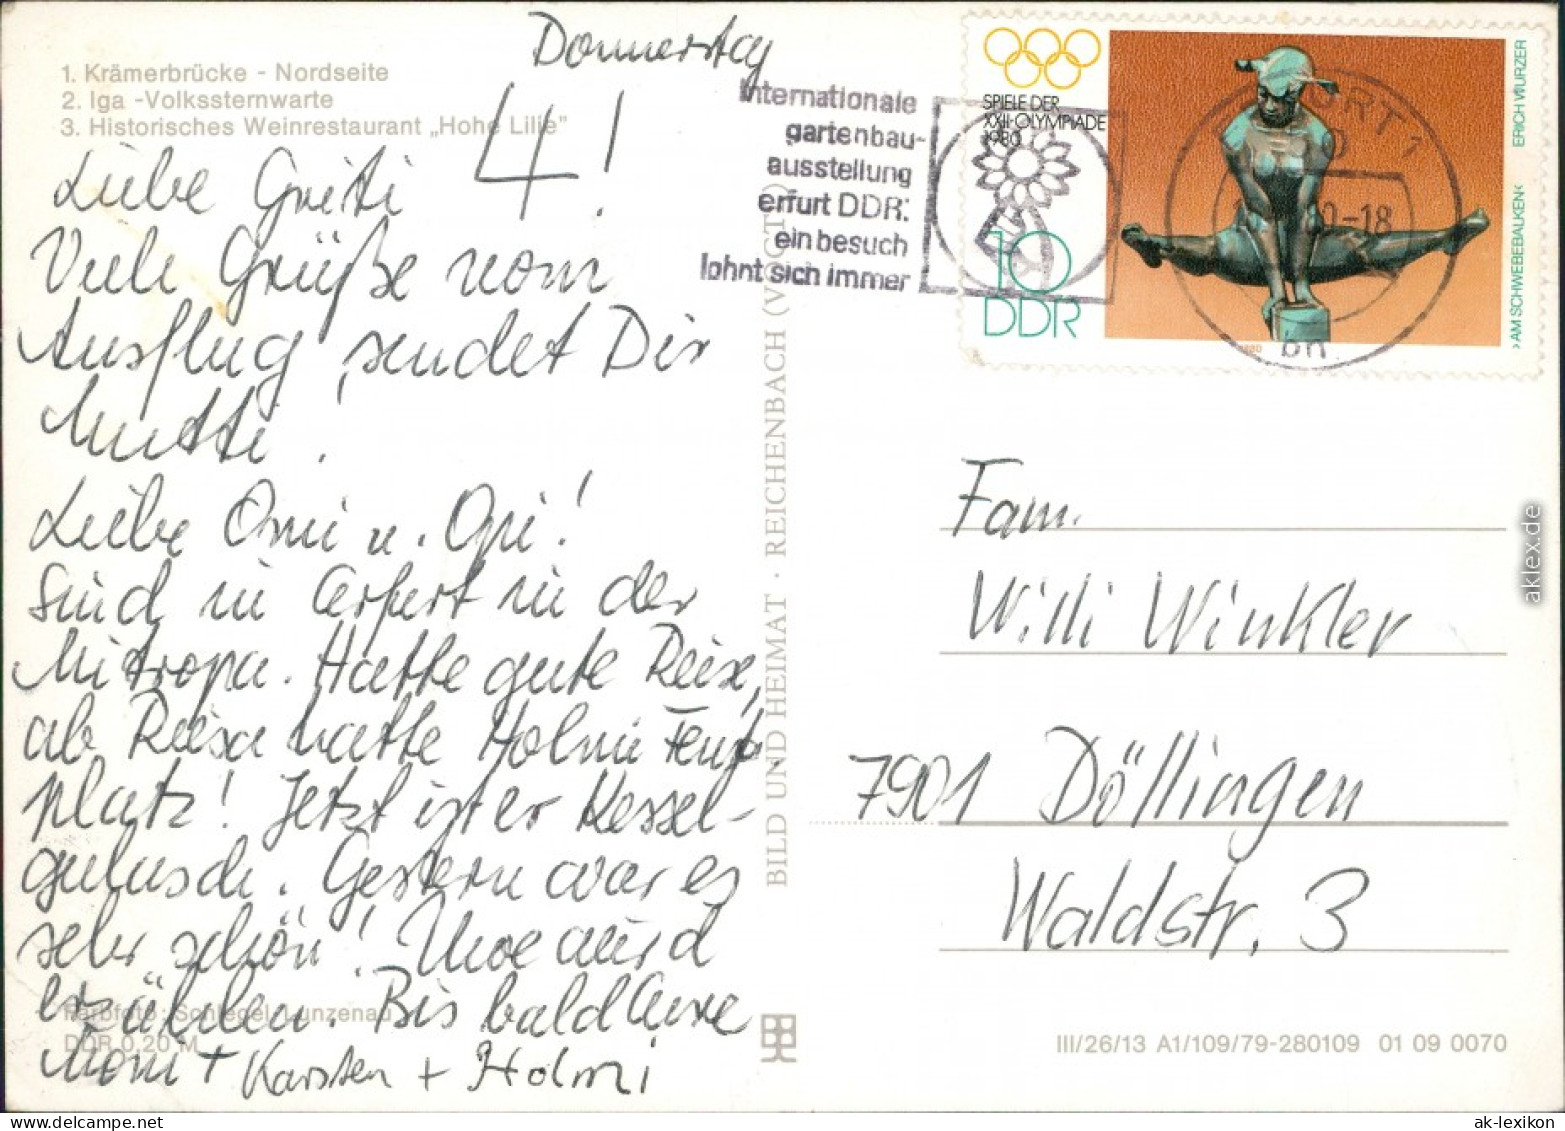 1. Krämerbrücke - Nordseite
2. Iga -Volkssternwarte
3. Historisches Weinrestaurant „Hohe Lilie"
Donnerstag
4!
Liebe
Viele Grüße vom
Ausflug, sendet Dir
Mutti!
Liebe Omi u. Opi!
Sind in in der
Mitropa. Hatte gute Reise,
ab hatte Holmi
platz! Jetzt ißt er Kessel-
gulasch. Gestern war es
sehr schön!
erzählen. Bis bald Eure
Moni + Karsten + Holmi
Farbfoto: Schlegel, Lunzenau
DDR 0,20 M
BILD UND HEIMAT · REICHENBACH (VOGTL)
internationale
gartenbau-
ausstellung
erfurt DDR:
ein besuch
lohnt sich immer
SPIELE DER
XXII. OLYMPIADE
1980
10
DDR
ERICH WURZER
›AM SCHWEBEBALKEN‹
ERFURT 1
-18
bn
1980
Fam.
Willi Winkler
7901 Döllingen
Waldstr. 3
III/26/13 A1/109/79-280109 01 09 0070
aklex.de
ak-lexikon